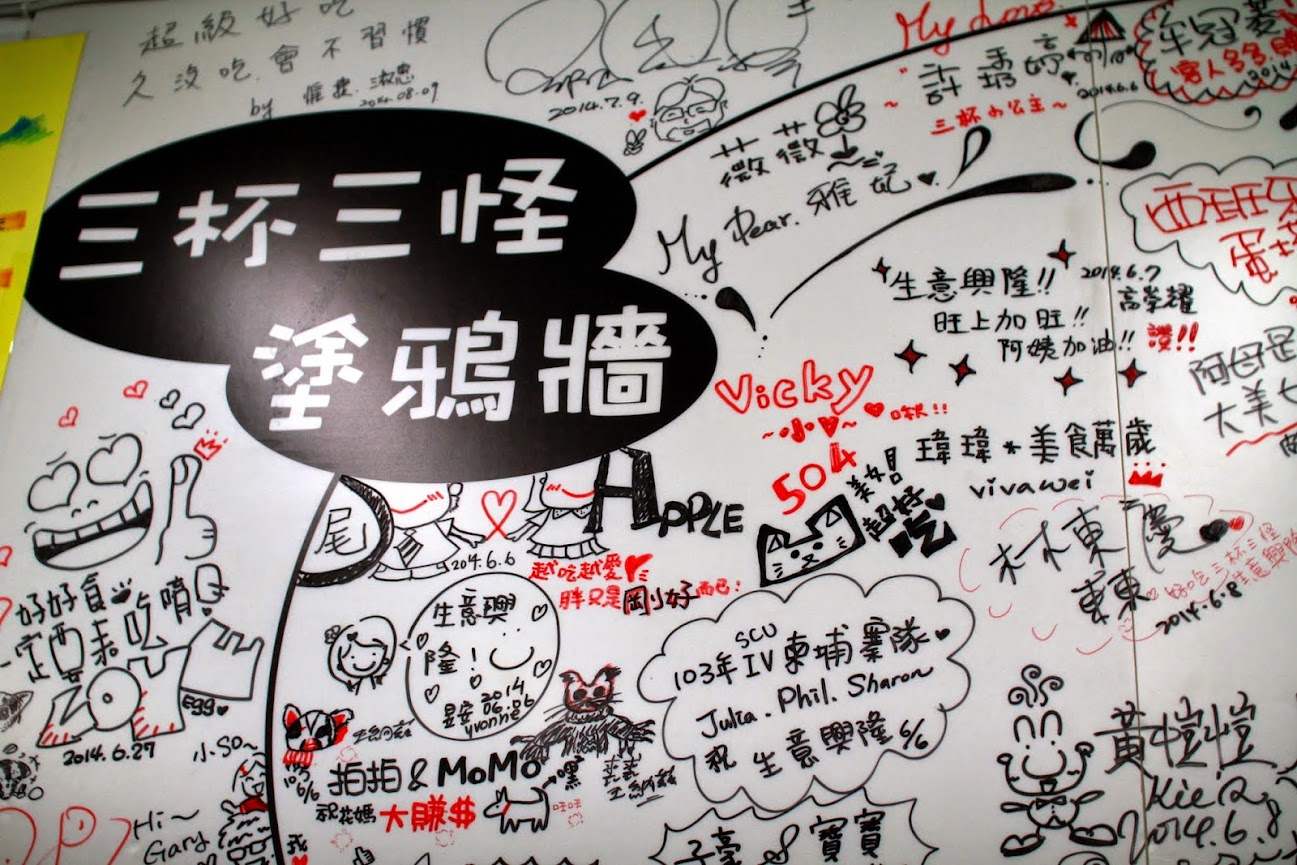 超級好吃
久沒吃.會不習慣
by
2014.08.09
2014.7.9.
My Love
許琇婷
~三杯小公主~
2014.6.6
客人多多
2014
薇薇
My Dear. 雅妃
三杯三怪
塗鴉牆
生意興隆!!
2014.6.7
旺上加旺!!
高榮耀
阿姨加油!! 讚!!
西班牙
阿母是
大美女
Vicky
504
美女兒
超好吃
瑋瑋*美食萬歲
vivawei
APPLE
尾
2014.6.6
越吃越愛
胖又是剛好而已!
林東慶
東東
好吃三杯三怪
生意興隆
2014.6.8
好好食
一定要來吃唷
ZOE
egg
2014.6.27
生意興
隆!
2014
06.06
yvonne
SCU
103年IV柬埔寨隊
Julia. Phil. Sharon
祝 生意興隆 6/6
小.so~
拍拍&MoMo
祝花媽 大賺$
汪汪
黃愷愷
2014.6.8
Hi~
Gary
寶寶